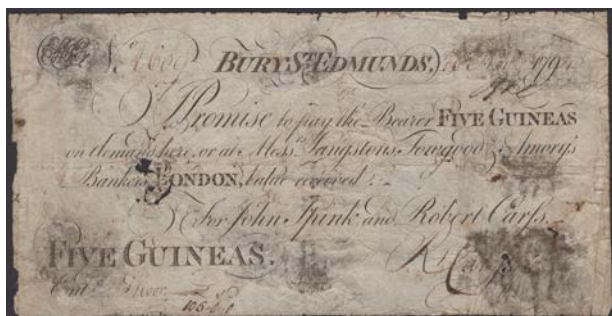 BURY ST EDMUNDS. 179
I Promise to pay the Bearer FIVE GUINEAS
on demand here, or at Messrs Langstons, Towgood & Amory's
Bankers LONDON, value received
For John Spink and Robert Carss.
FIVE GUINEAS.
Entd